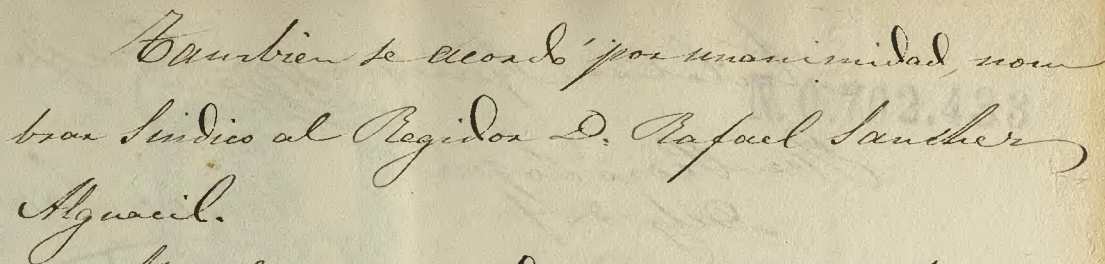 Tambien se acordó por unanimidad, nom
brar Sindico al Regidor D. Rafael Sanchez
Alguacil.